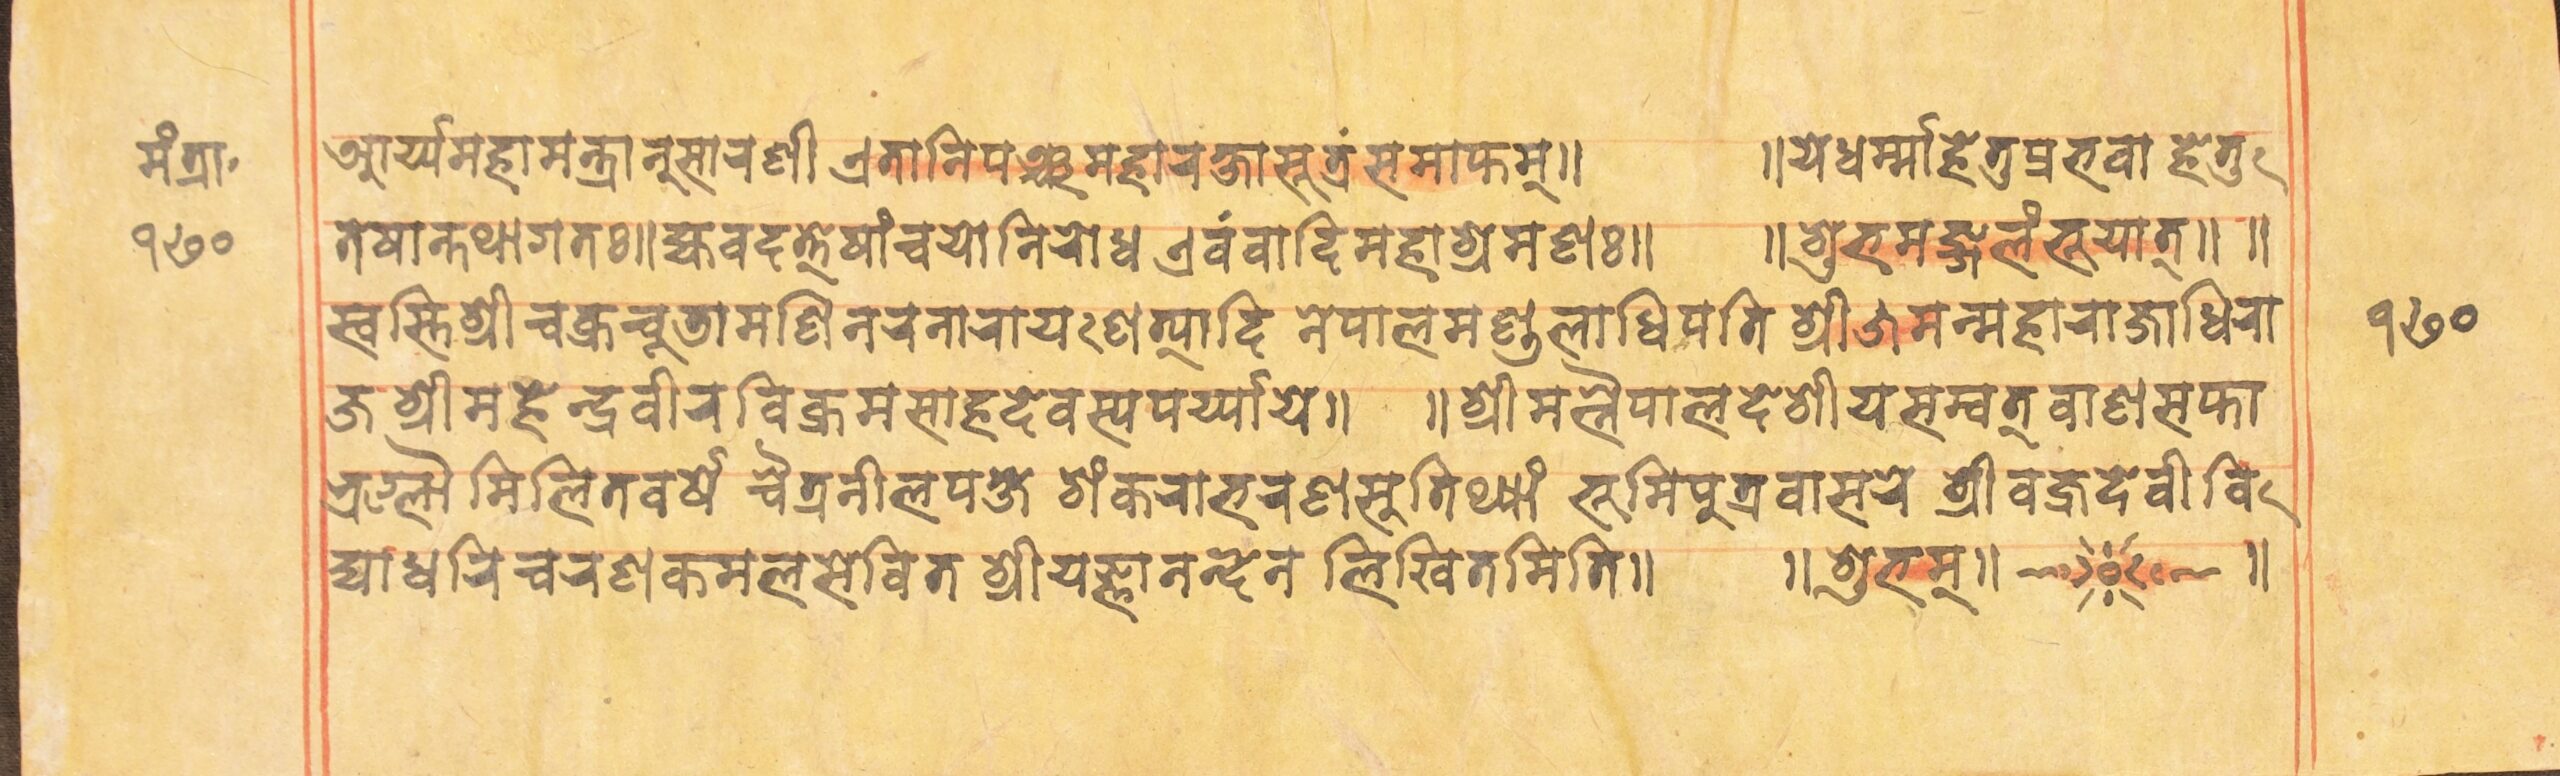 मंत्रा॰
आर्य्यमहामन्त्रानुसारणी एतानिपञ्चमहारक्षासूत्रंसमाप्तम्॥ ॥येधर्म्माहेतुप्रभवा हेतु
१७०
तेषान्तथागतः॥ह्यवदत्तेषांचयोनिरोध एवंवादिमहाश्रमणः॥ ॥शुभमङ्गलंभूयात्॥ ॥
स्वस्तिश्रीचक्रचूडामणिनरनारायणेत्यादि नेपालमण्डलाधिपति श्री५मन्महाराजाधिरा
१७०
जश्रीमहेन्द्रवीरविक्रमसाहदेवस्यपर्य्याये॥ ॥श्रीमन्नैपालदेशीयसम्वत् वाणसप्ता
मिलितवर्षे चैत्रनीलपक्ष शंकराभरणसुतिथ्यां भूमिपुत्रवासरे श्रीवज्रदेवीवि
द्याधरिचरणकमलसेवित श्रीयज्ञानन्देन लिखितमिति॥ ॥शुभम्॥ ॥